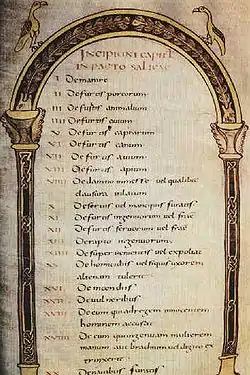 INCIPIUNT CAPITL
IN PACTO SALICAE
I De manire
II De furtis porcorum
III De furtis animalium
IIII De furtis ovium
V De furtis caprarum
VI De furtis canum
VII De furtis avium
VIII De furtis apium
VIIII De damno in messe vel qualibet
clausura inlatum
X De servis vel mancipiis furatis
XI De furtis ingenuorum vel frae
XII De furtis servorum vel frae
XIII De rapto ingenuorum
XIIII De superventis vel expoliatis
XV De homicidiis vel si quis uxorem
alienam tulerit
XVI De incendiis
XVII De vulneribus
XVIII De eum qui ad regem innocentem
hominem accusat
De eum qui ingenuam mulierem
manum aut brachium vel digito ex
trinxerit
XX De navibus furatis